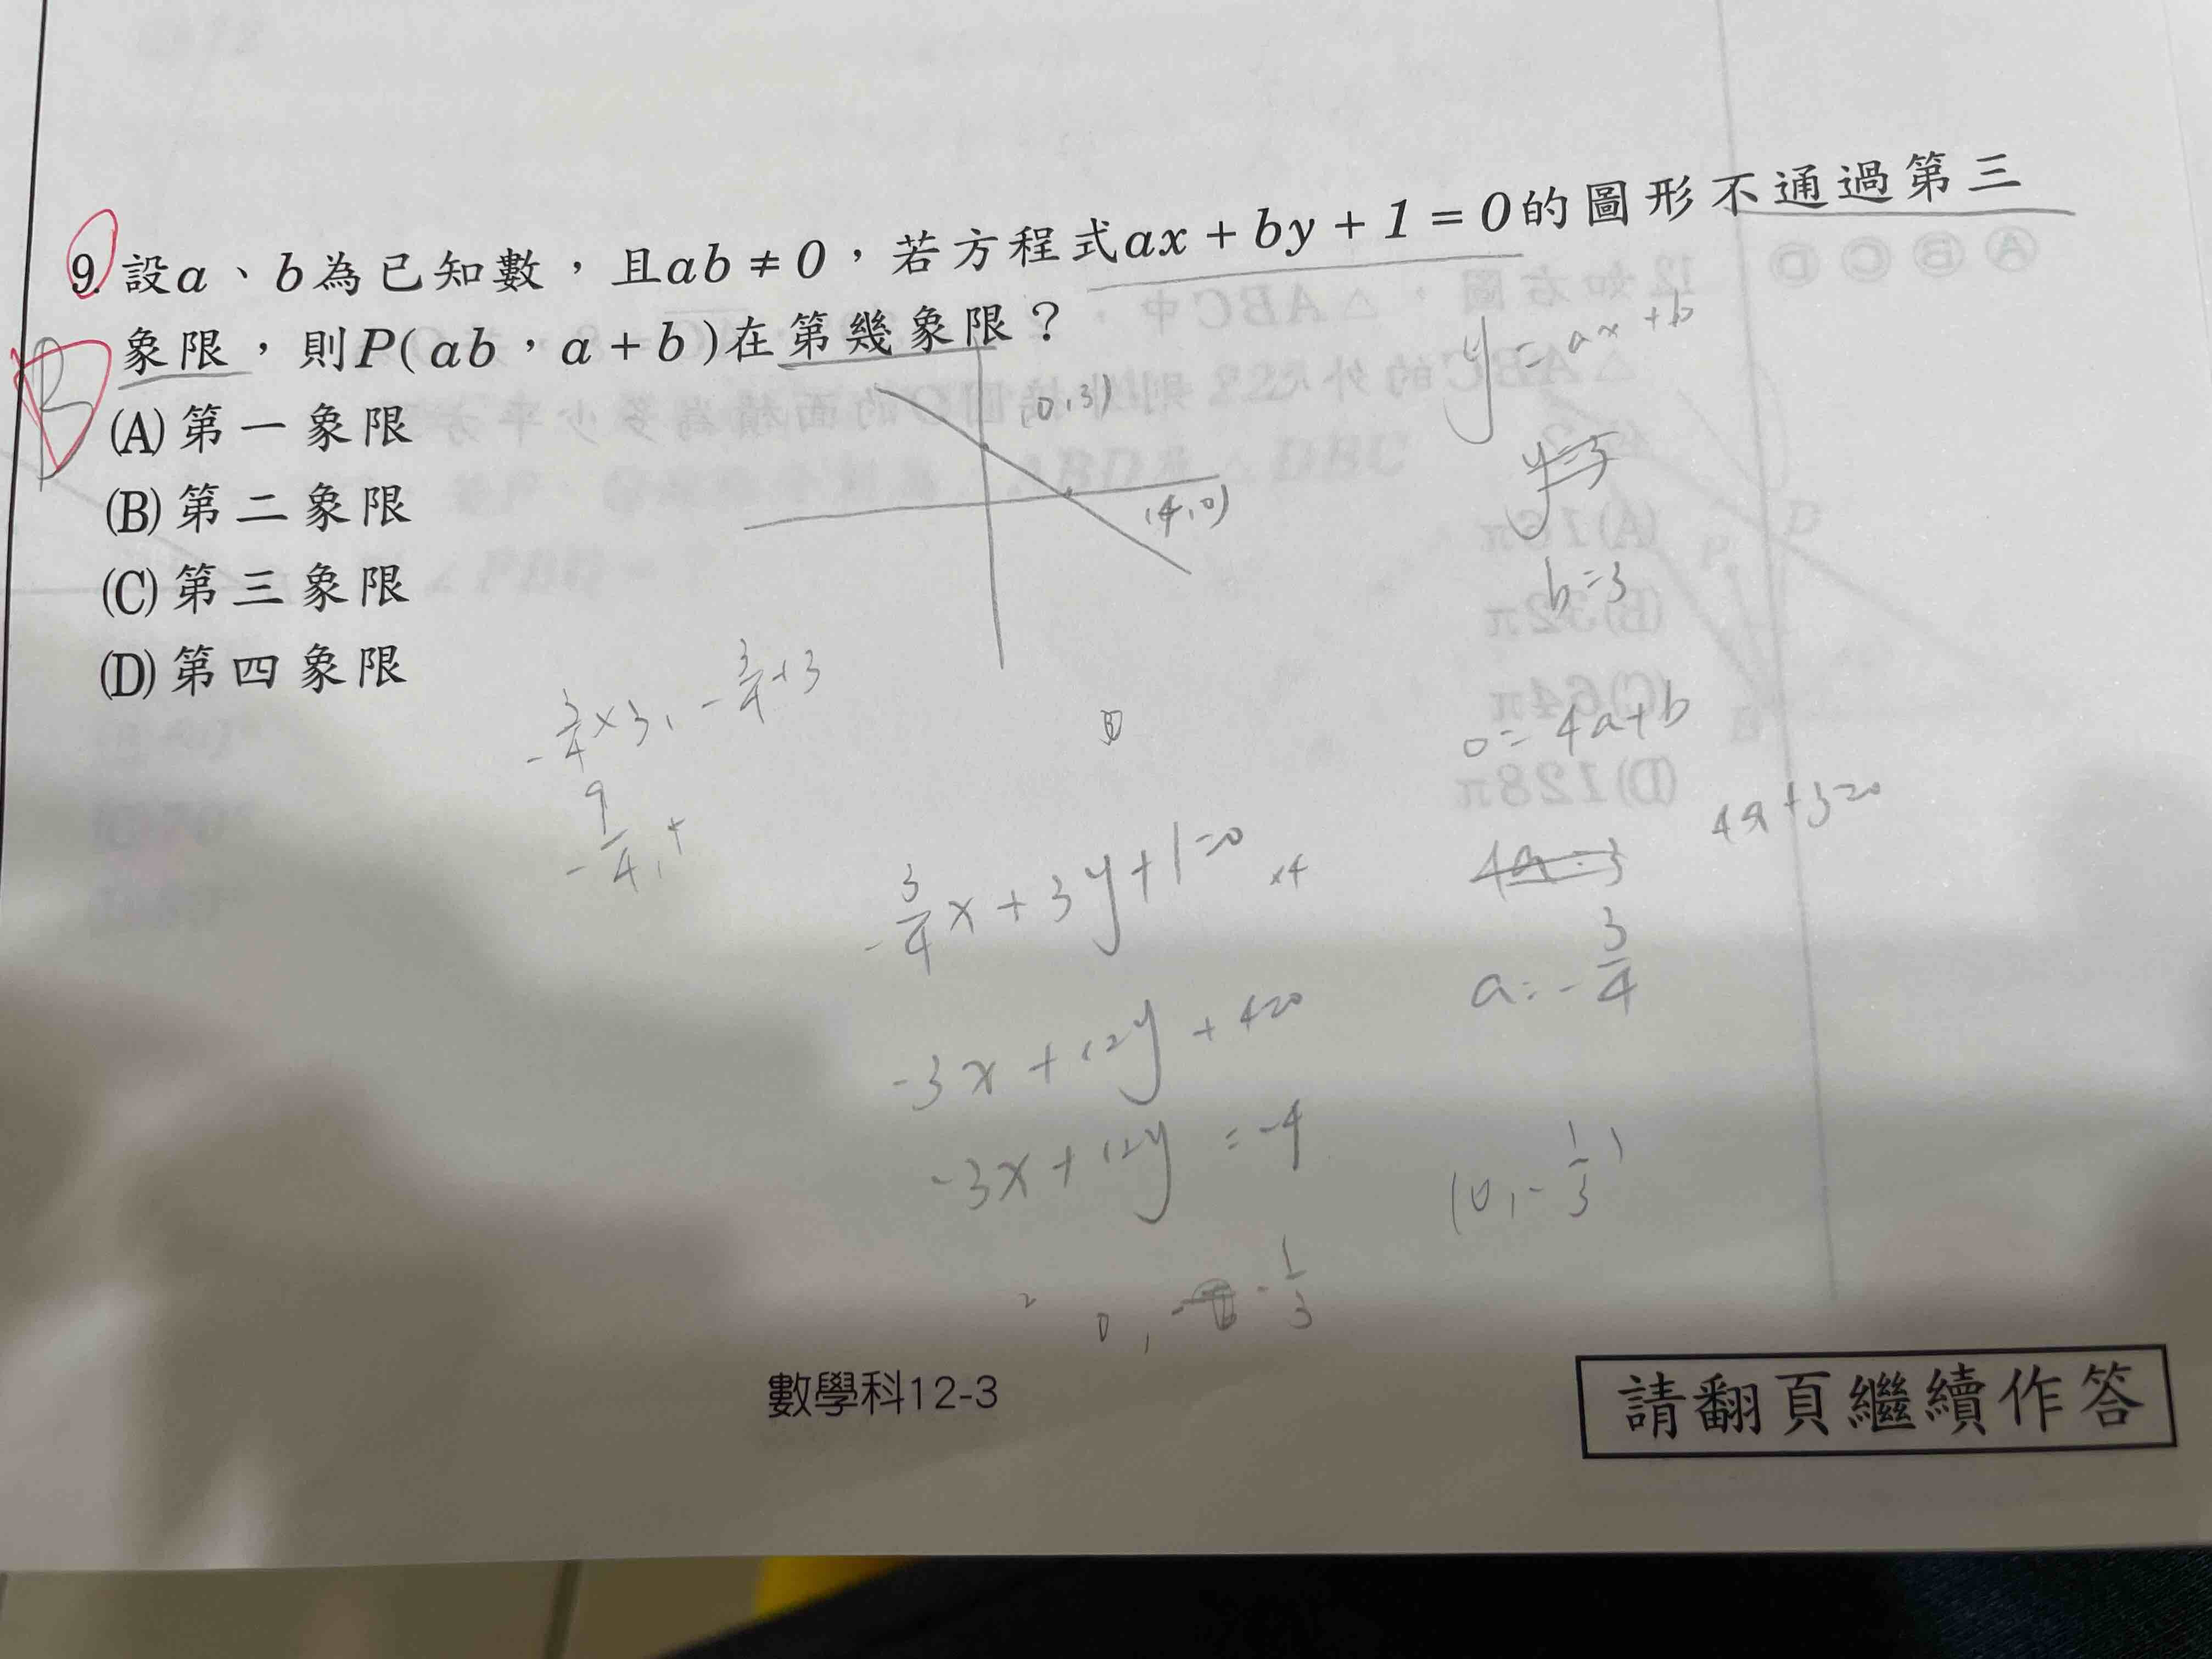 9. 設a、b為已知數，且ab≠0，若方程式ax+by+1=0的圖形不通過第三
象限，則P(ab，a+b)在第幾象限？
B
(A)第一象限
(B)第二象限
(C)第三象限
(D)第四象限
(0,3)
(4,0)
y=ax+b
y=3
b=3
0=4a+b
4a+3=0
a=-3/4
-3/4×3, -3/4+3
-9/4, +
-3/4x+3y+1=0 ×4
-3x+12y+4=0
-3x+12y=-4
(0,-1/3)
0, -1/3
數學科12-3
請翻頁繼續作答